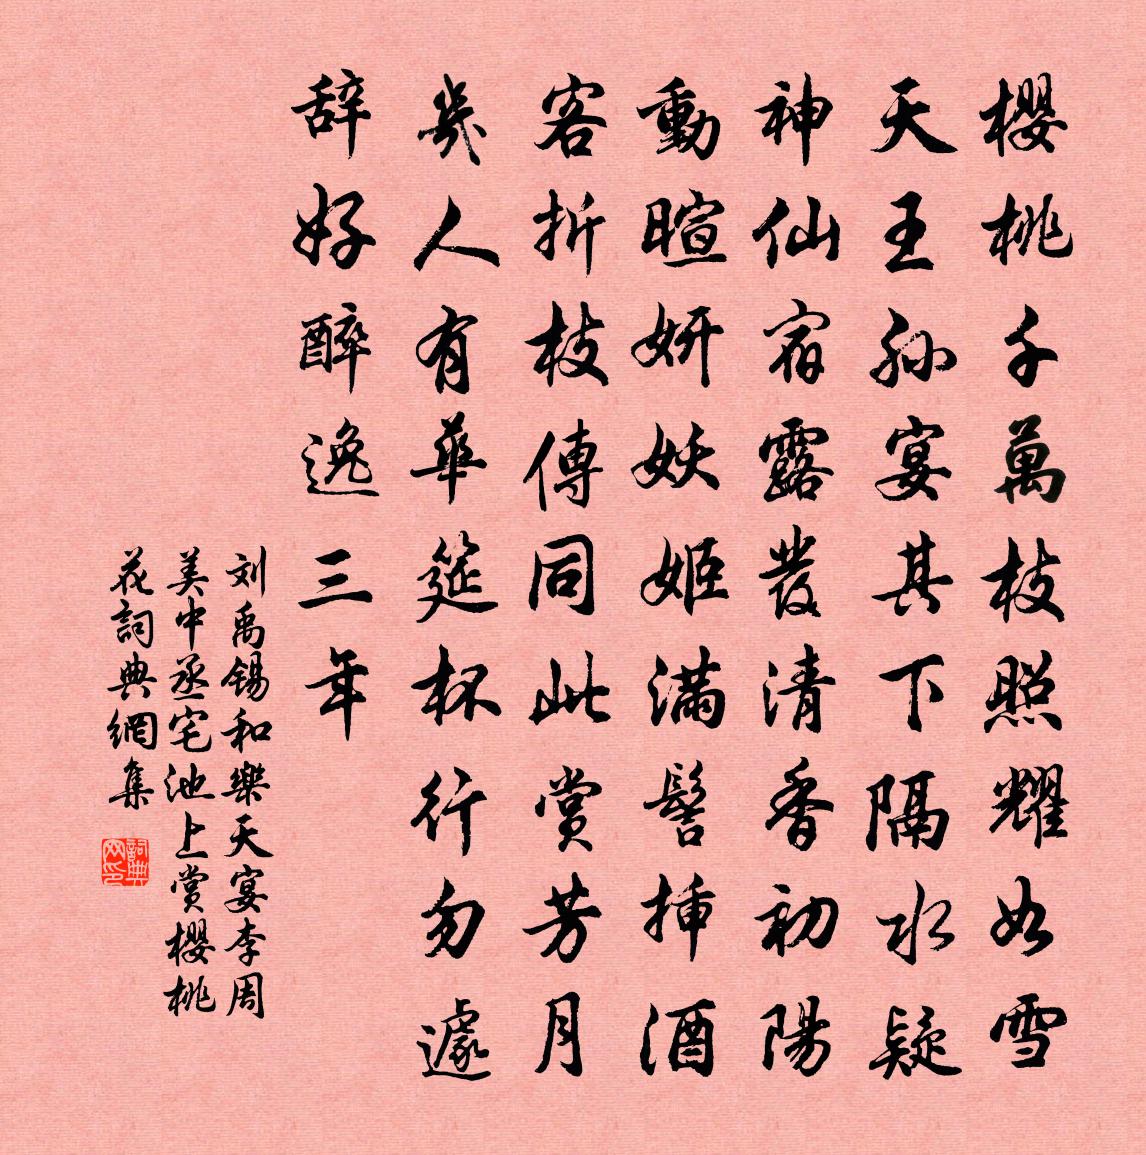 櫻桃千萬枝照耀如雪
天王孫宴其下隔水疑
神仙宿露發清香初陽
動暄妍妖姬滿髻插酒
客折枝傳同此賞芳月
幾人有華筵杯行勿遽
辞好醉逸三年
刘禹錫和樂天宴李周
美中丞宅池上賞櫻桃
花詞典網集
詞典
网印